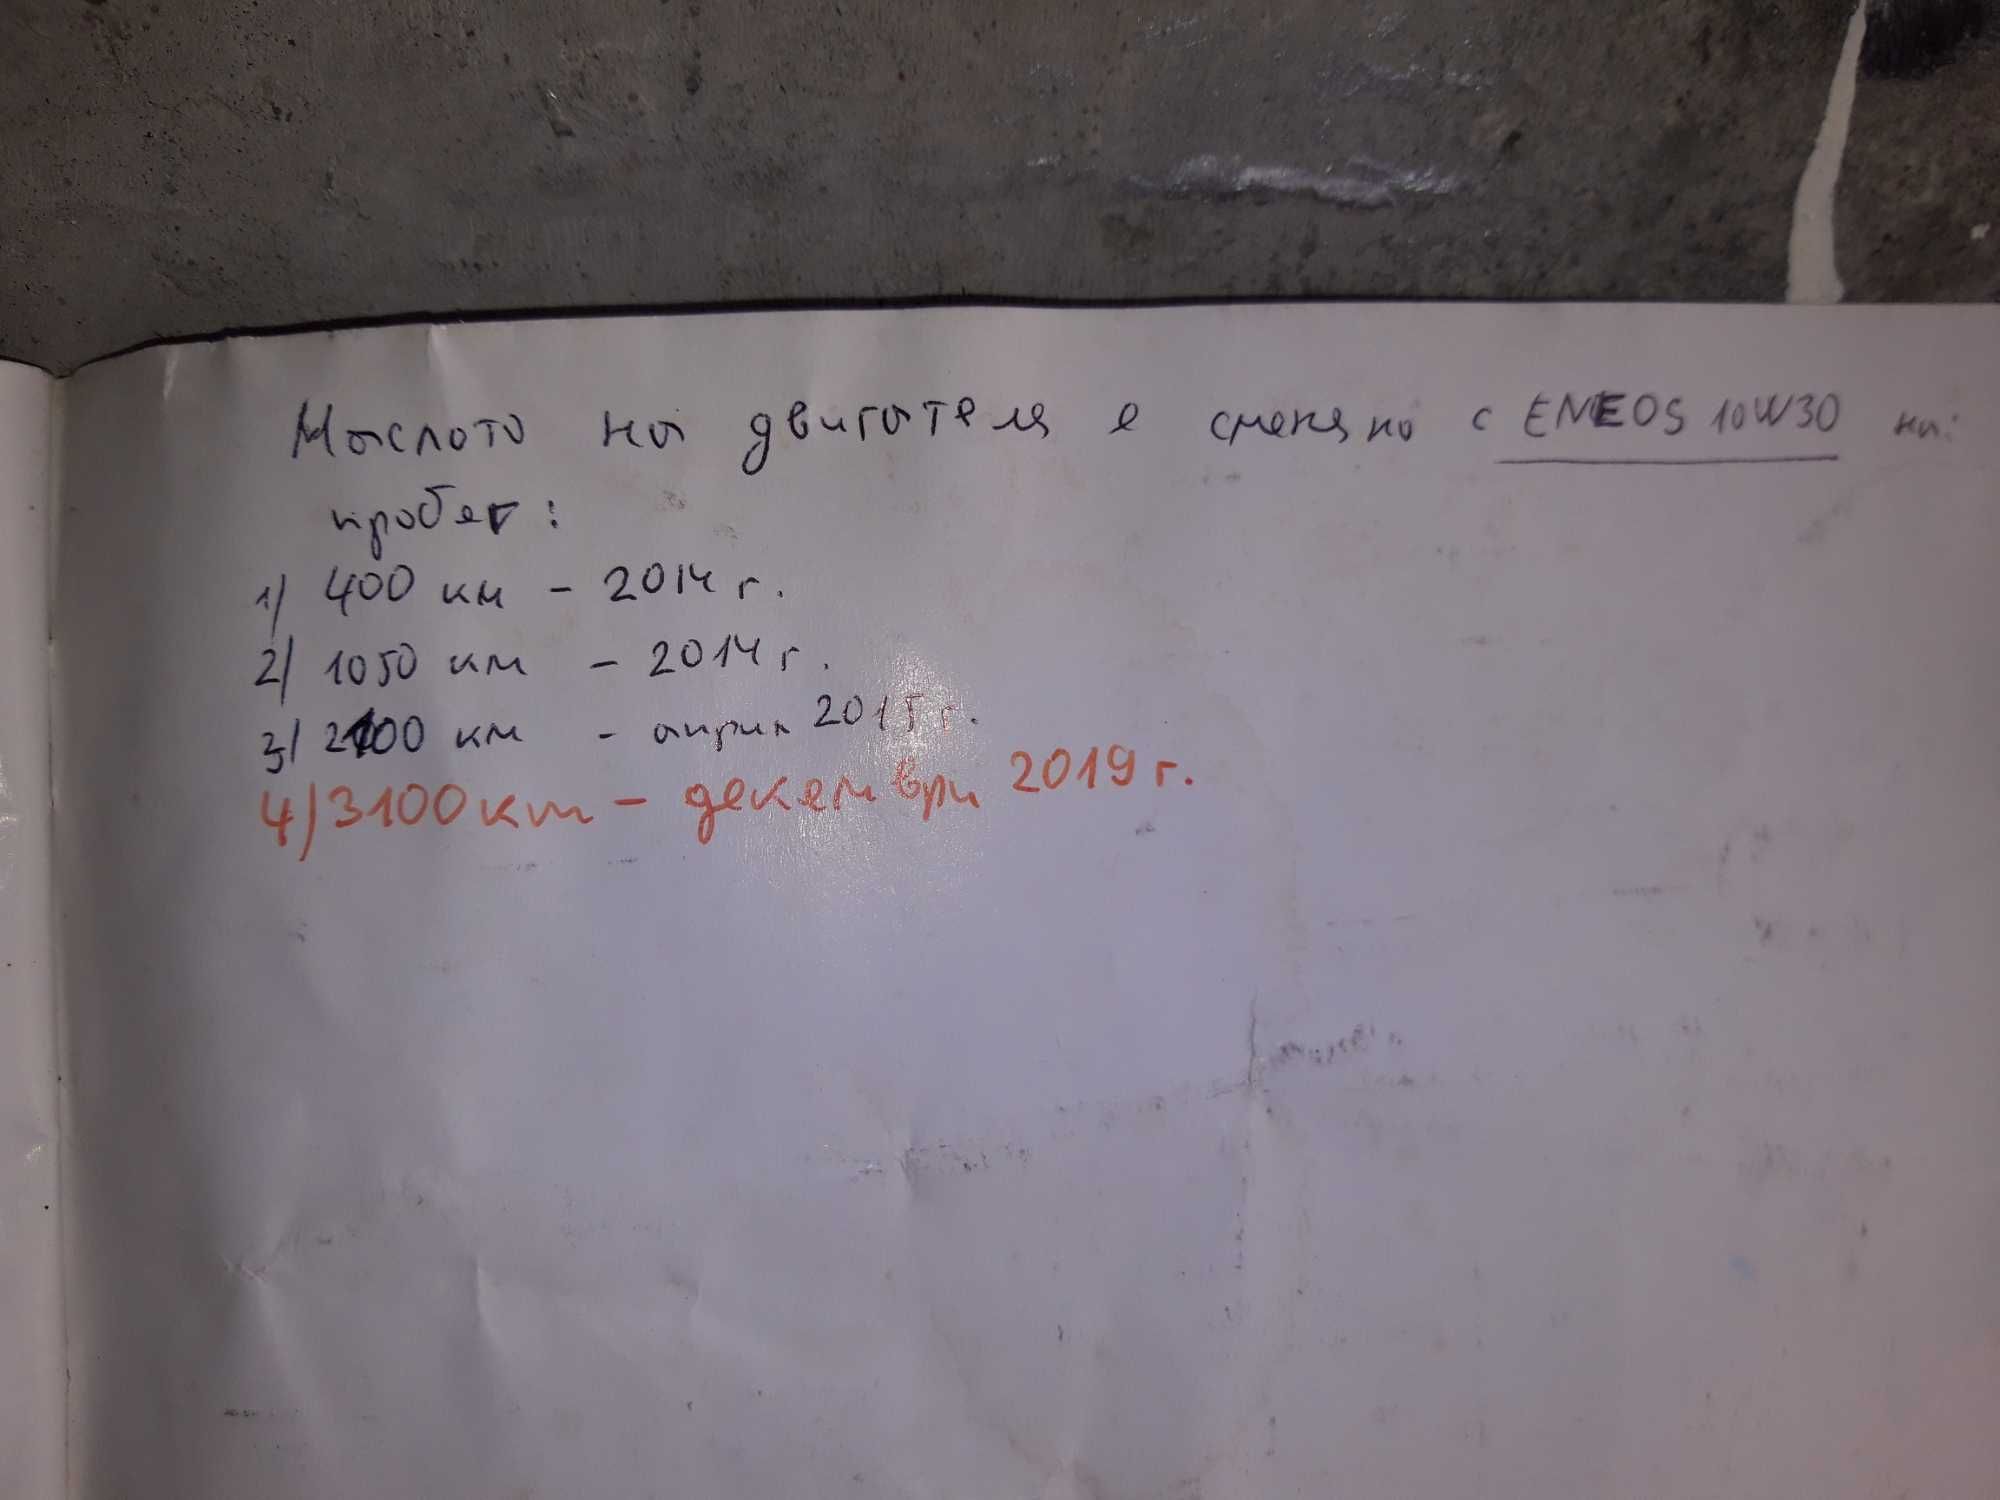 Маслото на двигателя е сменяно с ENEOS 10W30 на:
пробег:
1) 400 км - 2014 г.
2) 1050 км - 2014 г.
3) 2100 км - април 2015 г.
4) 3100 км - декември 2019 г.